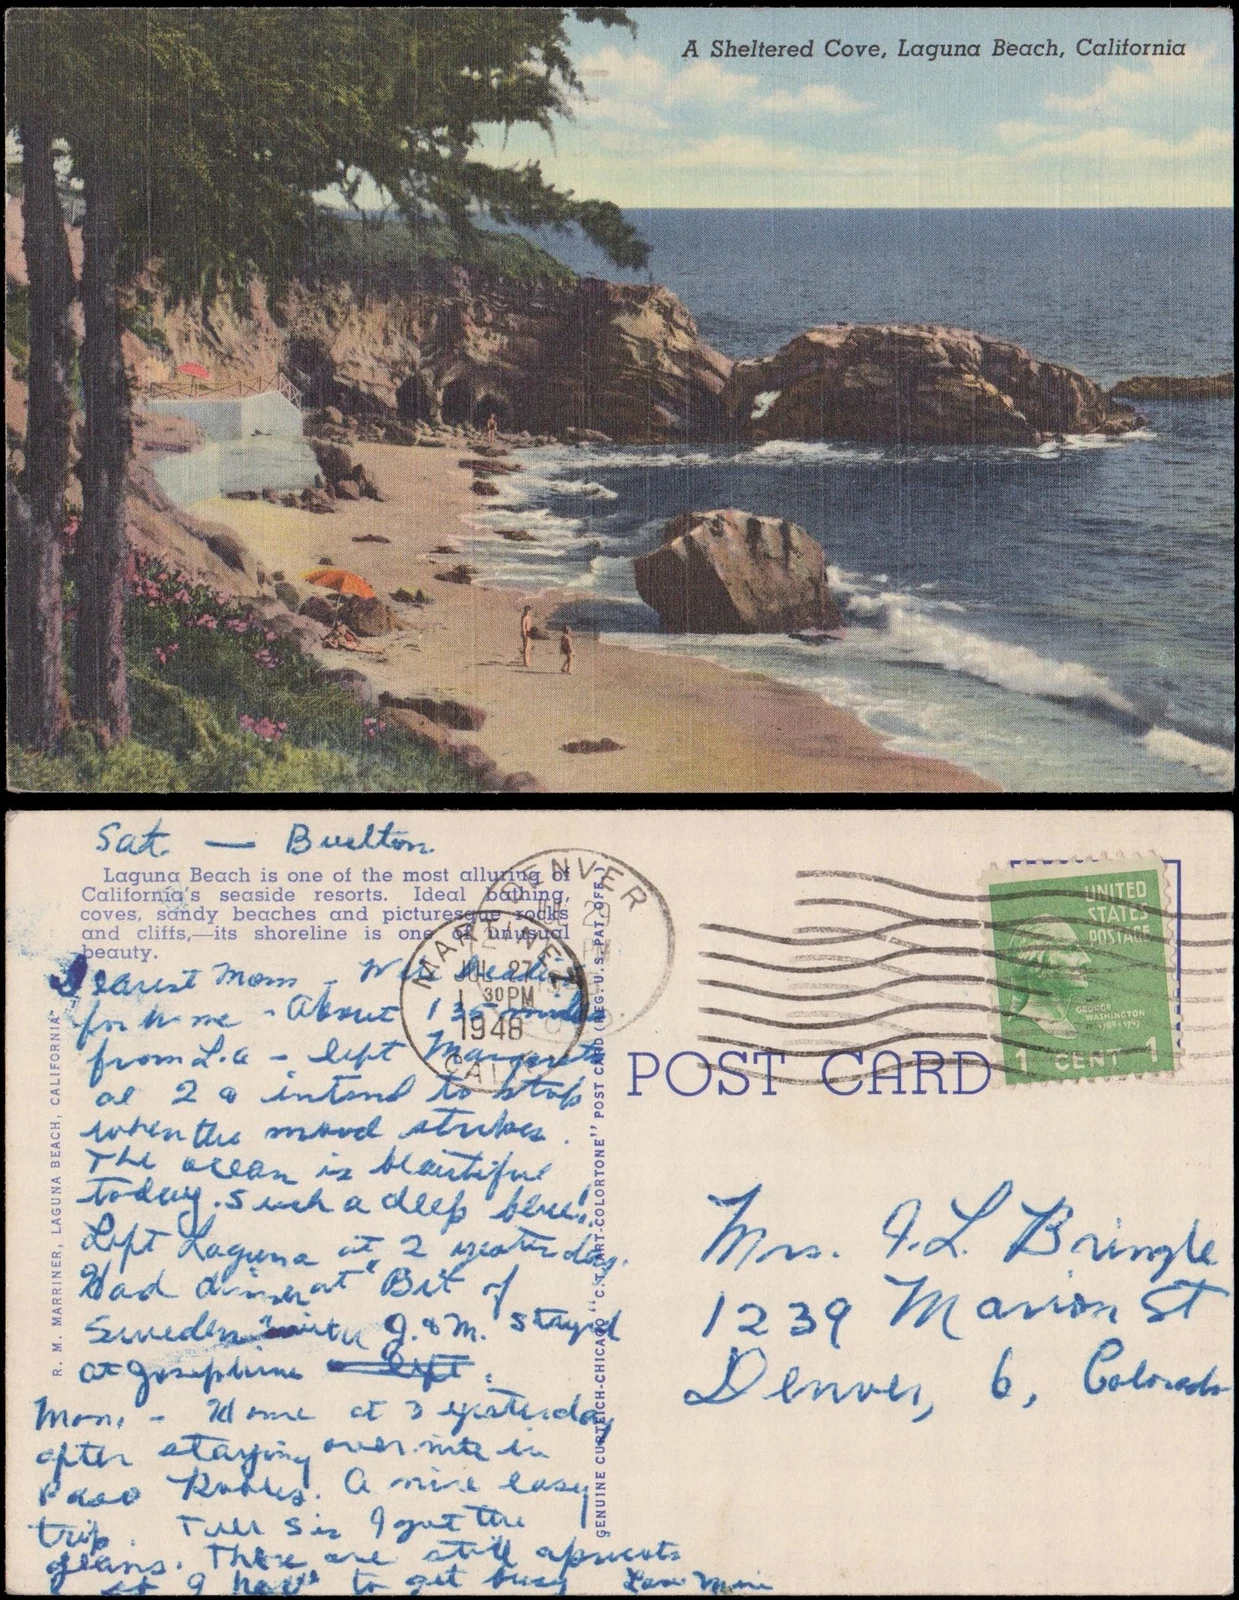 A Sheltered Cove, Laguna Beach, California
Sat. — Buellton.
Laguna Beach is one of the most alluring of
California's seaside resorts. Ideal bathing,
coves, sandy beaches and picturesque rocks
and cliffs,—its shoreline is one of unusual
beauty.
Dearest Mom - We're heading
for home - About 135 miles
from L.A - left Margaret's
at 2 & intend to stop
when the mood strikes.
The ocean is beautiful
today. Such a deep blue!
Left Laguna at 2 yesterday.
Had dinner at "Bit of
Sweden" with J. & M. Stayed
at Josephine
Mon. - Home at 3 yesterday
after staying over nite in
Paso Robles. A nice easy
trip. Tell Sis I got the
jeans. There are still apricots
to get busy
R. M. MARRINER, LAGUNA BEACH, CALIFORNIA
GENUINE CURTEICH-CHICAGO "C. T. ART-COLORTONE" POST CARD (REG. U. S. PAT. OFF.)
DENVER
MARTINEZ
JUL 27
1 30 PM
1948
CALIF.
POST CARD
UNITED
STATES
POSTAGE
GEORGE
WASHINGTON
1789-1797
1 CENT 1
Mrs. J. L. Bringle
1239 Marion St
Denver, 6, Colorado